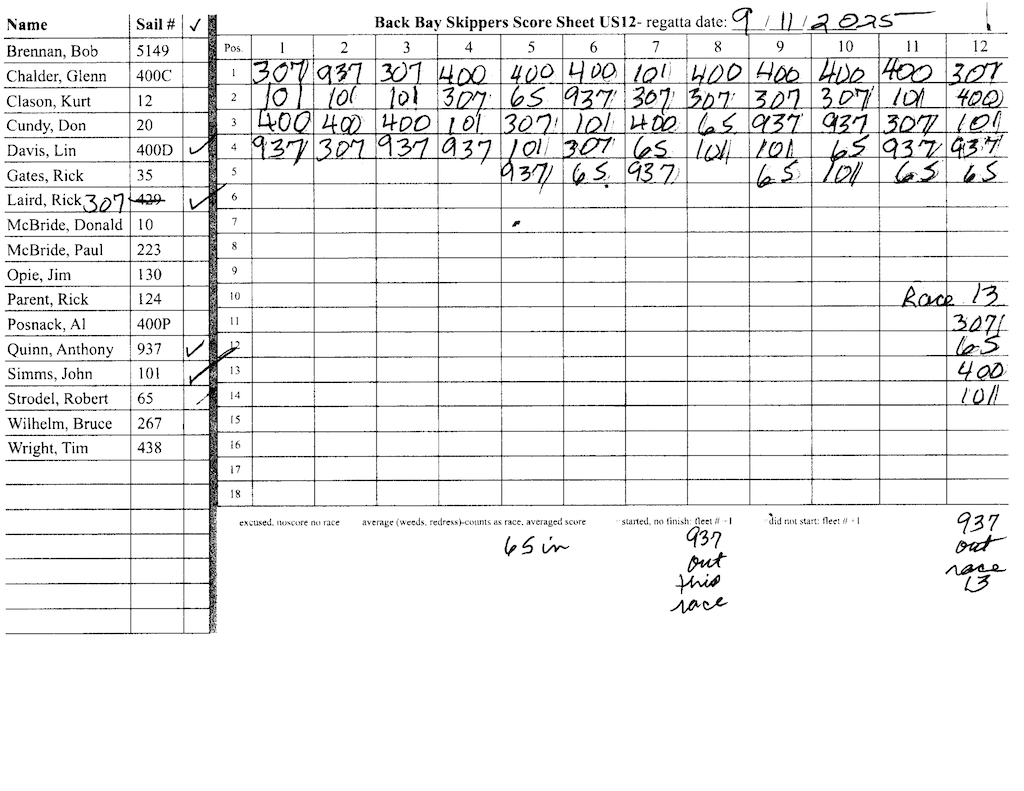 Back Bay Skippers Score Sheet US12- regatta date: 9/11/2025
Name Sail # ✓
Pos. 1 2 3 4 5 6 7 8 9 10 11 12
Brennan, Bob 5149
Chalder, Glenn 400C
Clason, Kurt 12
Cundy, Don 20
Davis, Lin 400D ✓
Gates, Rick 35
Laird, Rick 307 429 ✓
McBride, Donald 10
McBride, Paul 223
Opie, Jim 130
Parent, Rick 124
Posnack, Al 400P
Quinn, Anthony 937 ✓
Simms, John 101 ✓
Strodel, Robert 65 ✓
Wilhelm, Bruce 267
Wright, Tim 438
1 307 937 307 400 400 400 101 400 400 400 400 307
2 101 101 101 307 65 937 307 307 307 307 101 400
3 400 400 400 101 307 101 400 65 937 937 307 101
4 937 307 937 937 101 307 65 101 101 65 937 937
5 937 65 937 65 101 65 65
6
7
8
9
10 Race 13
11 307
12 65
13 400
14 101
15
16
17
18
excused, noscore no race average (weeds, redress)-counts as race, averaged score started, no finish: fleet # +1 did not start: fleet # +1
65 in
937
out
this
race
937
out
race
13